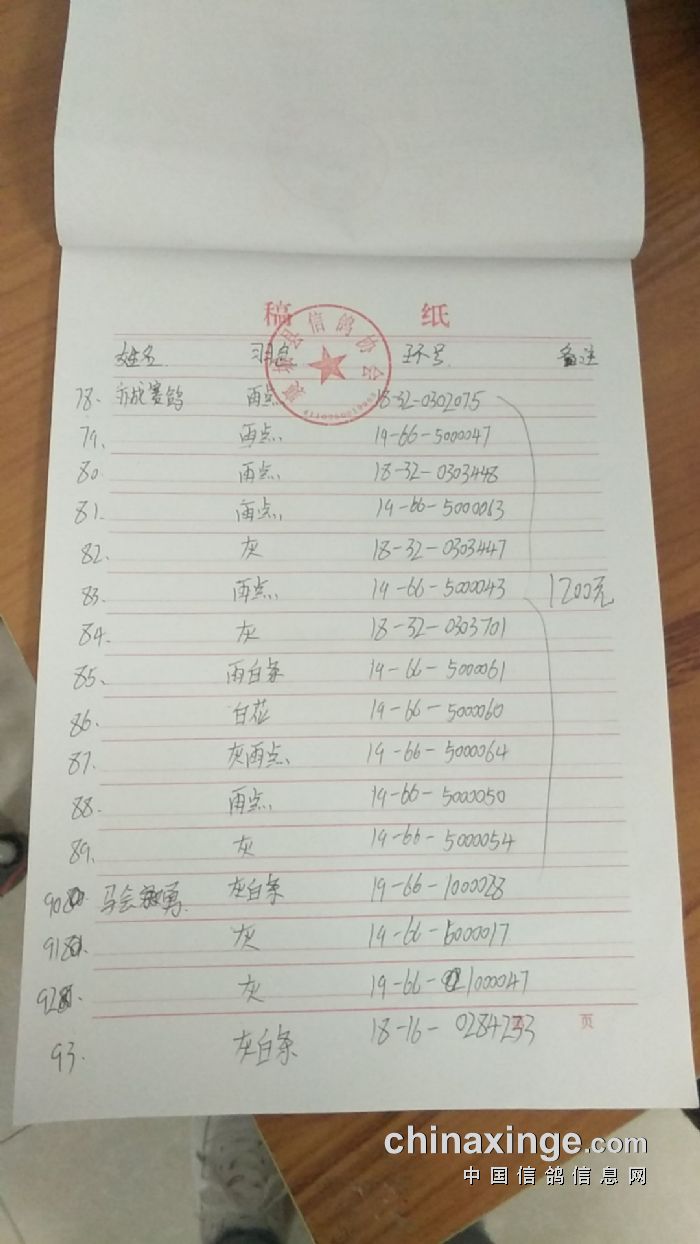 稿 纸
信鸽协会
姓名 羽色 环号 备注
78. 战赛鸽 雨点 18-32-0302075
79. 雨点 19-66-5000047
80 雨点 18-32-0303448
81. 雨点 19-66-5000063
82. 灰 18-32-0303447
83. 雨点 19-66-5000043 1200元
84. 灰 18-32-0303701
85. 雨白条 19-66-5000061
86. 白花 19-66-5000060
87. 灰雨点 19-66-5000064
88. 雨点 19-66-5000050
89. 灰 19-66-5000054
90 马会勇 灰白条 19-66-1000028
91 灰 19-66-5000017
92 灰 19-66-1000047
93. 灰白条 18-16-0284233 页
chinaxinge.com
中国信鸽信息网